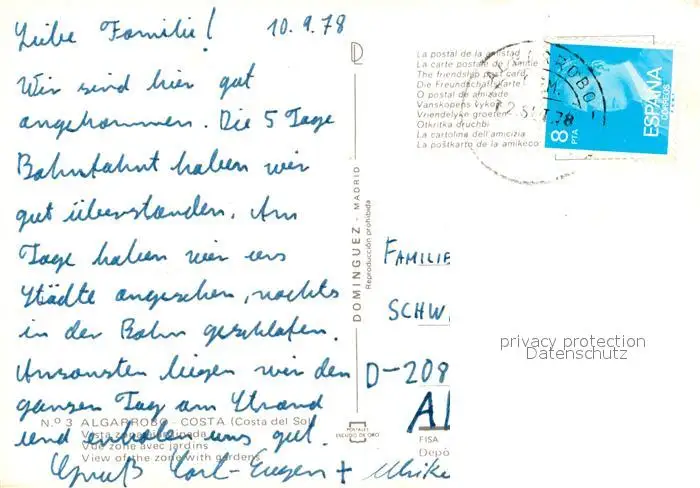 Liebe Familie! 10.9.78
Wir sind hier gut
angekommen. Die 5 Tage
Bahnfahrt haben wir
gut überstanden. Am
Tage haben wir uns
Städte angesehen, nachts
in der Bahn geschlafen.
Ansonsten liegen wir den
ganzen Tag am Strand
und erholen uns gut.
Gruß Karl-Eugen + Ulrike
N.º 3 ALGARROBO - COSTA (Costa del Sol)
Vista zona ajardinada
Vue zone avec jardins
View of the zone with gardens
DOMINGUEZ - MADRID
Reproducción prohibida
POSTALES
ESCUDO DE ORO
La postal de la amistad
La carte postale de l'amitie
The friendship post card
Die Freundschaftskarte
O postal de amizade
Vänskopens vykort
Vriendelyke groeten
Otkritka druchbi
La cartolina dell'amicizia
La poŝtkarto de la amikeco
ESPAÑA
CORREOS
8 PTA
FAMILIE
SCHW
D-208
FISA
Depó
privacy protection
Datenschutz